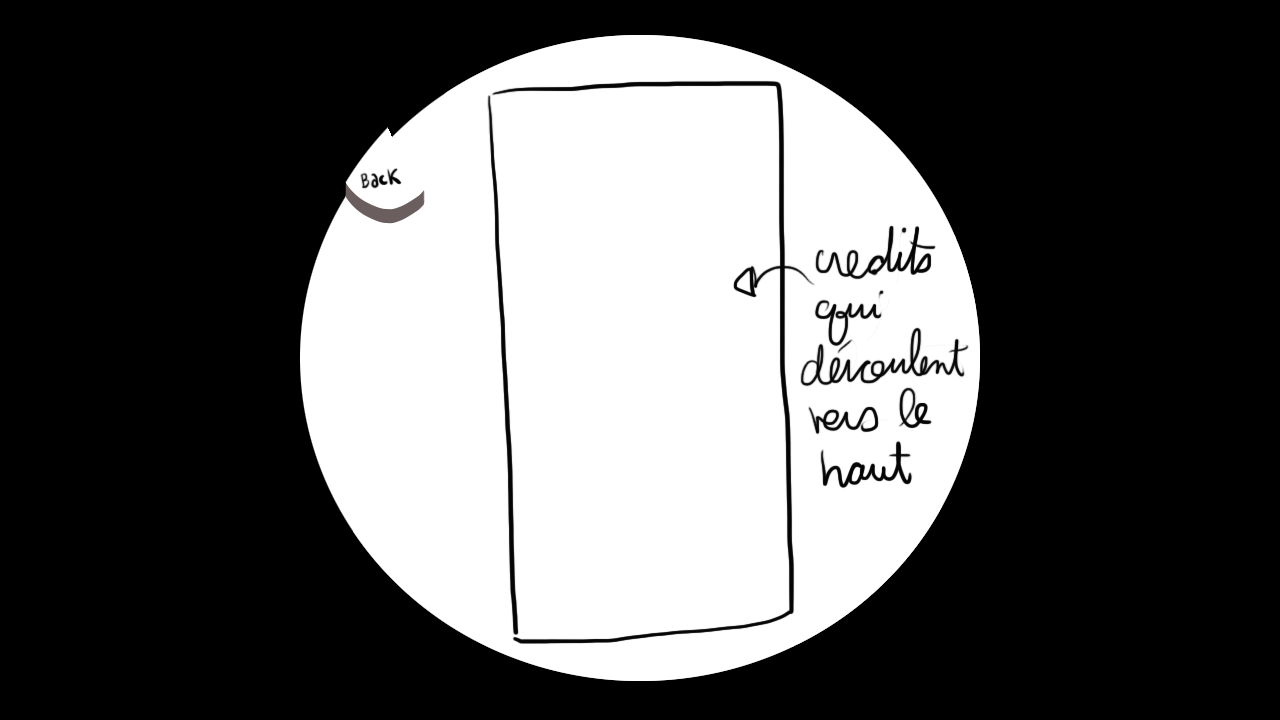 Back
credits
qui
déroulent
vers le
haut